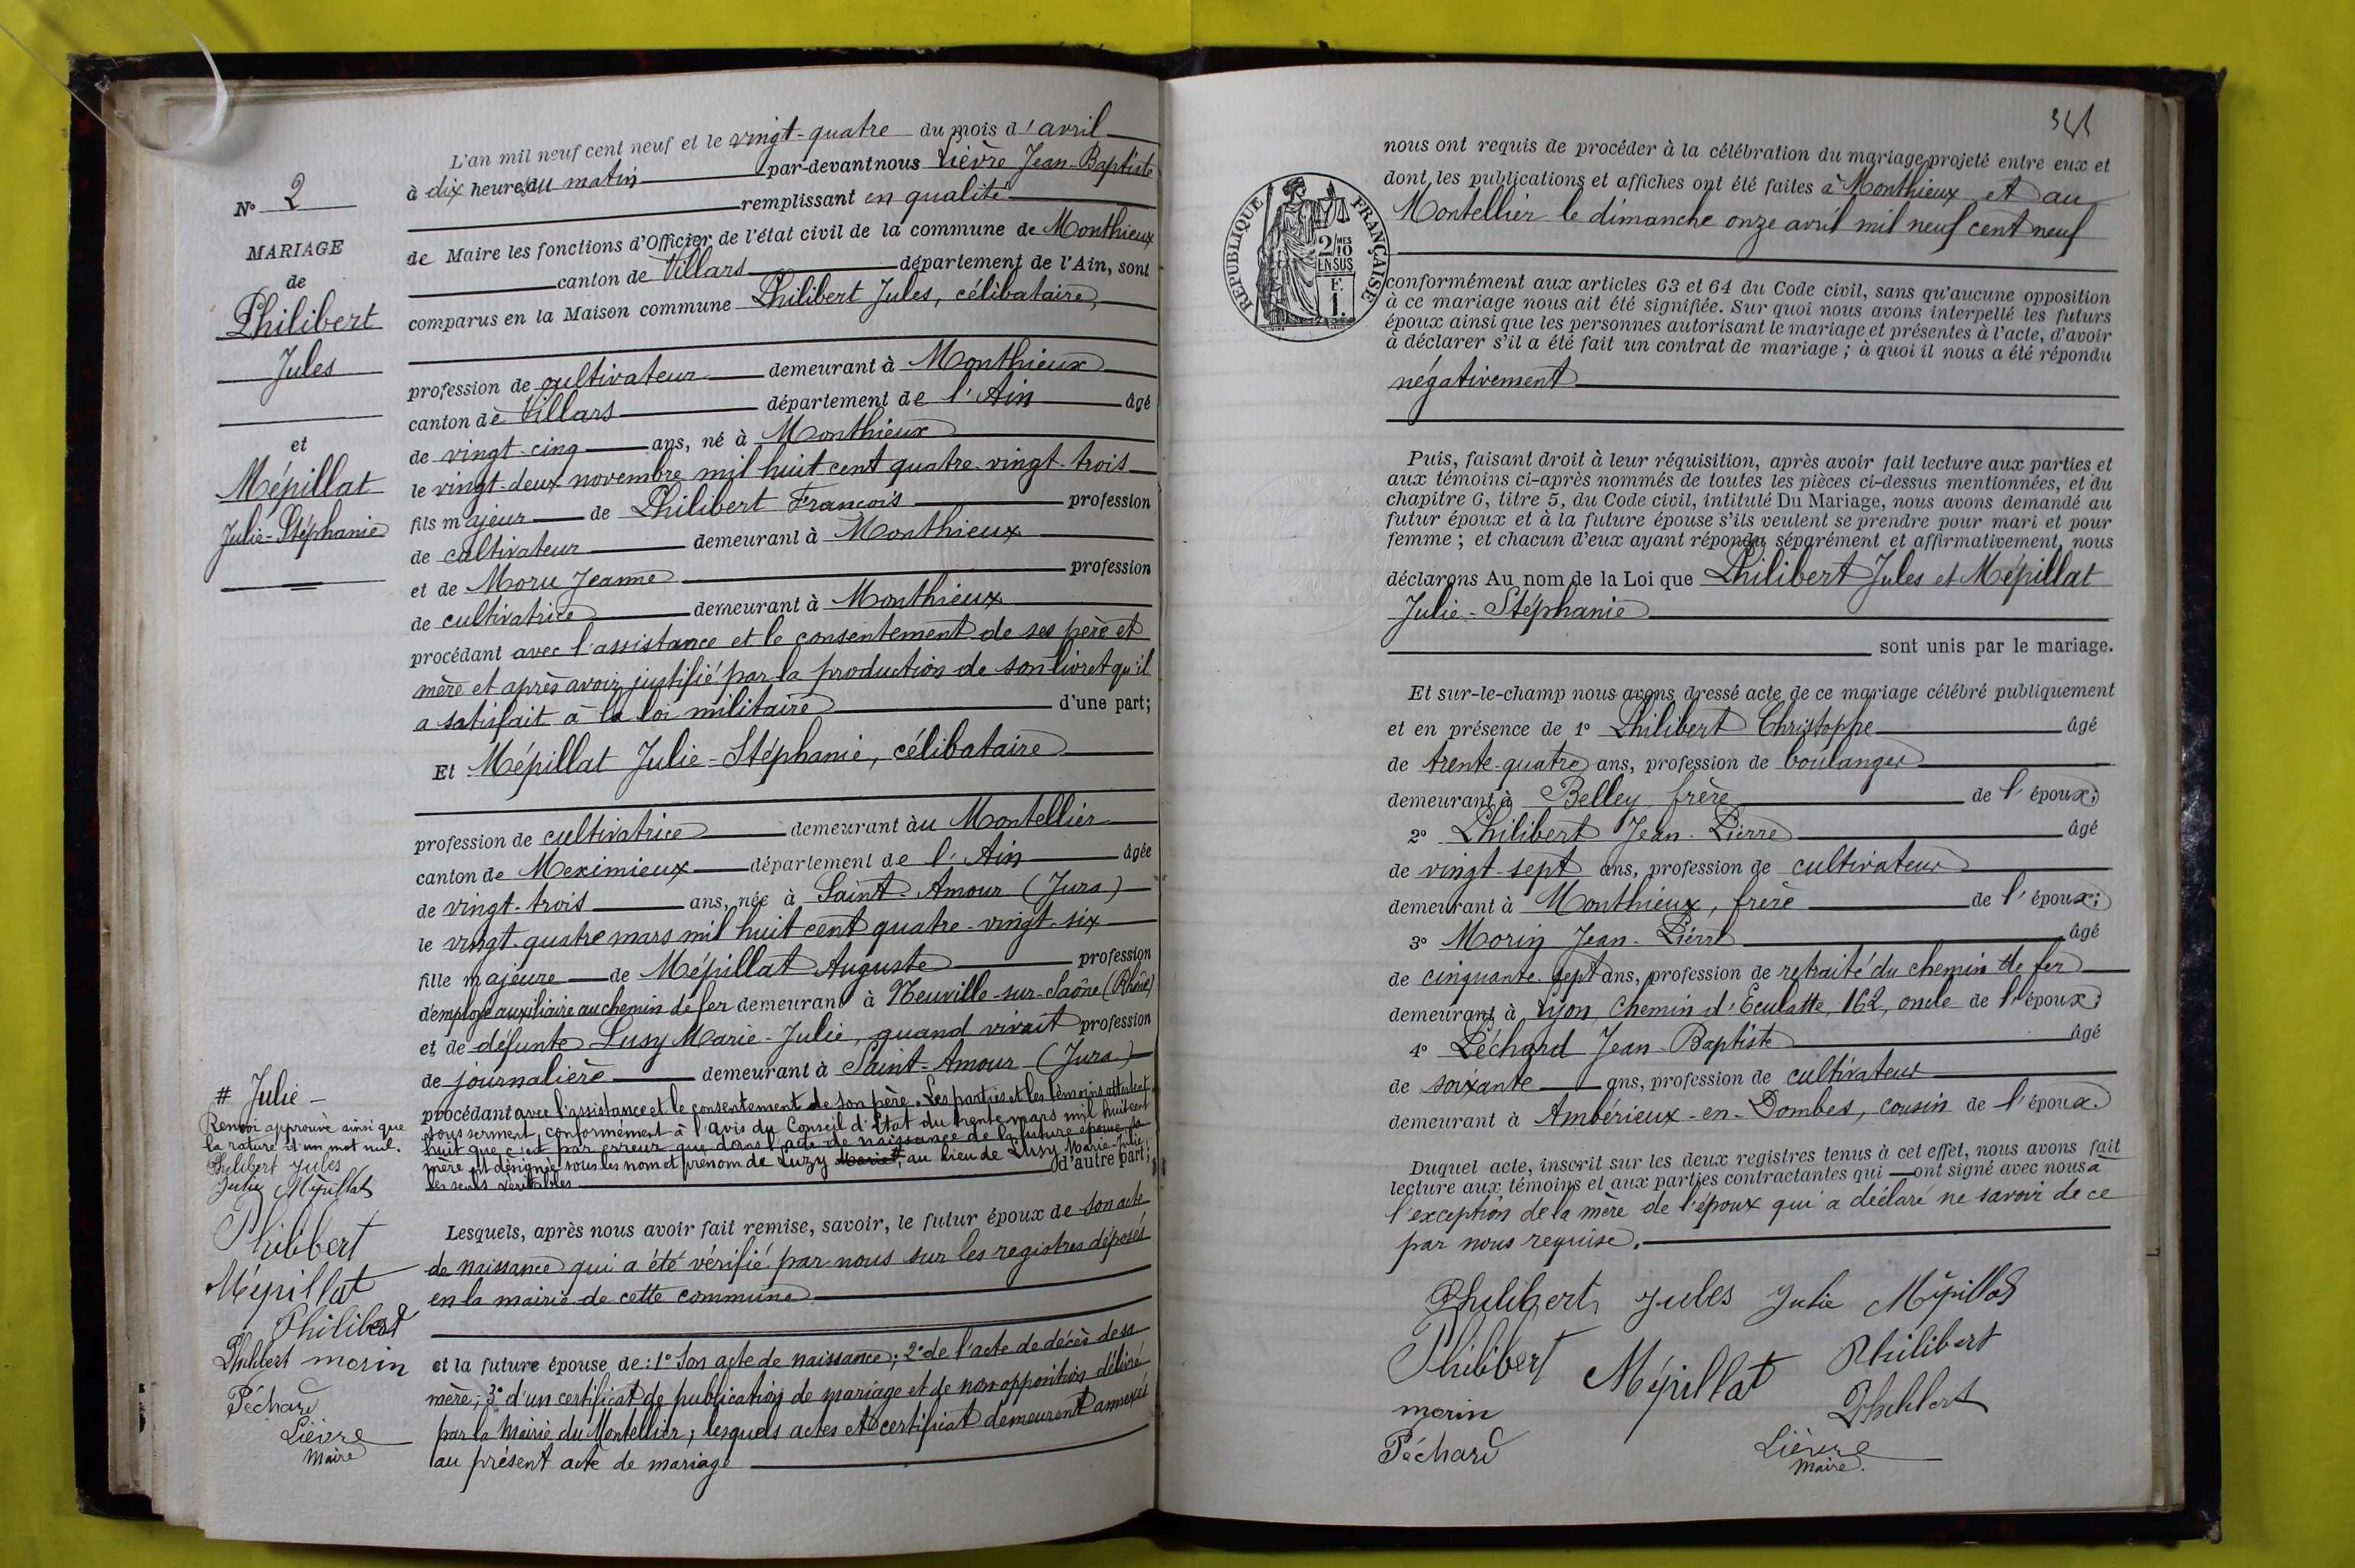 N° 2
MARIAGE
de
Philibert
Jules
et
Mépillat
Julie-Stéphanie
# Julie -
Renvoi approuvé ainsi que
la rature d'un mot nul.
Philibert Jules
Julie Mépillat
Philibert
Mépillat
Philibert
Philibert morin
Péchard
Lièvre
Maire
L'an mil neuf cent neuf et le vingt-quatre du mois d'avril
à dix heures du matin par-devant nous Lièvre Jean-Baptiste
remplissant en qualité
de Maire les fonctions d'Officier de l'état civil de la commune de Monthieux
canton de Villars département de l'Ain, sont
comparus en la Maison commune Philibert Jules, célibataire,
profession de cultivateur demeurant à Monthieux
canton de Villars département de l'Ain âgé
de vingt-cinq ans, né à Monthieux
le vingt-deux novembre mil huit cent quatre-vingt-trois
fils majeur de Philibert François profession
de cultivateur demeurant à Monthieux
et de Moru Jeanne profession
de cultivatrice demeurant à Monthieux
procédant avec l'assistance et le consentement de ses père et
mère et après avoir justifié par la production de son livret qu'il
a satisfait à la loi militaire d'une part;
Et Mépillat Julie-Stéphanie, célibataire
profession de cultivatrice demeurant au Montellier
canton de Meximieux département de l'Ain âgée
de vingt-trois ans, née à Saint-Amour (Jura)
le vingt-quatre mars mil huit cent quatre-vingt-six
fille majeure de Mépillat Auguste profession
d'employé auxiliaire au chemin de fer demeurant à Neuville-sur-Saône (Rhône)
et de défunte Lusy Marie-Julie, quand vivait profession
de journalière demeurant à Saint-Amour (Jura)
procédant avec l'assistance et le consentement de son père. Les parties et les témoins attestent
sous serment, conformément à l'avis du Conseil d'Etat du trente mars mil huit cent
huit que c'est par erreur que dans l'acte de naissance de la future épouse, sa
mère est désignée sous les nom et prénom de Luzy Marie #, au lieu de Lusy Marie-Julie,
les seuls véritables. d'autre part;
Lesquels, après nous avoir fait remise, savoir, le futur époux de son acte
de naissance qui a été vérifié par nous sur les registres déposés
en la mairie de cette commune
et la future épouse de: 1° Son acte de naissance; 2° de l'acte de décès de sa
mère; 3° d'un certificat de publication de mariage et de non opposition délivré
par la Mairie du Montellier, lesquels actes et certificat demeurent annexés
au présent acte de mariage
341
RÉPUBLIQUE FRANÇAISE
2/10MES
EN SUS
F.
1.
nous ont requis de procéder à la célébration du mariage projeté entre eux et
dont les publications et affiches ont été faites à Monthieux et au
Montellier le dimanche onze avril mil neuf cent neuf
conformément aux articles 63 et 64 du Code civil, sans qu'aucune opposition
à ce mariage nous ait été signifiée. Sur quoi nous avons interpellé les futurs
époux ainsi que les personnes autorisant le mariage et présentes à l'acte, d'avoir
à déclarer s'il a été fait un contrat de mariage; à quoi il nous a été répondu
négativement
Puis, faisant droit à leur réquisition, après avoir fait lecture aux parties et
aux témoins ci-après nommés de toutes les pièces ci-dessus mentionnées, et du
chapitre 6, titre 5, du Code civil, intitulé Du Mariage, nous avons demandé au
futur époux et à la future épouse s'ils veulent se prendre pour mari et pour
femme; et chacun d'eux ayant répondu séparément et affirmativement, nous
déclarons Au nom de la Loi que Philibert Jules et Mépillat
Julie-Stéphanie
sont unis par le mariage.
Et sur-le-champ nous avons dressé acte de ce mariage célébré publiquement
et en présence de 1° Philibert Christophe âgé
de trente-quatre ans, profession de boulanger
demeurant à Belley, frère de l'époux;
2° Philibert Jean-Pierre âgé
de vingt-sept ans, profession de cultivateur
demeurant à Monthieux, frère de l'époux;
3° Morin Jean-Pierre âgé
de cinquante-sept ans, profession de retraité du chemin de fer
demeurant à Lyon, chemin d'Eculatte, 162, oncle de l'époux;
4° Péchard Jean-Baptiste âgé
de soixante ans, profession de cultivateur
demeurant à Ambérieux-en-Dombes, cousin de l'époux.
Duquel acte, inscrit sur les deux registres tenus à cet effet, nous avons fait
lecture aux témoins et aux parties contractantes qui ont signé avec nous à
l'exception de la mère de l'époux qui a déclaré ne savoir de ce
par nous requise.
Philibert Jules Julie Mépillat
Philibert Mépillat Philibert
morin Philibert
Péchard Lièvre
Maire.